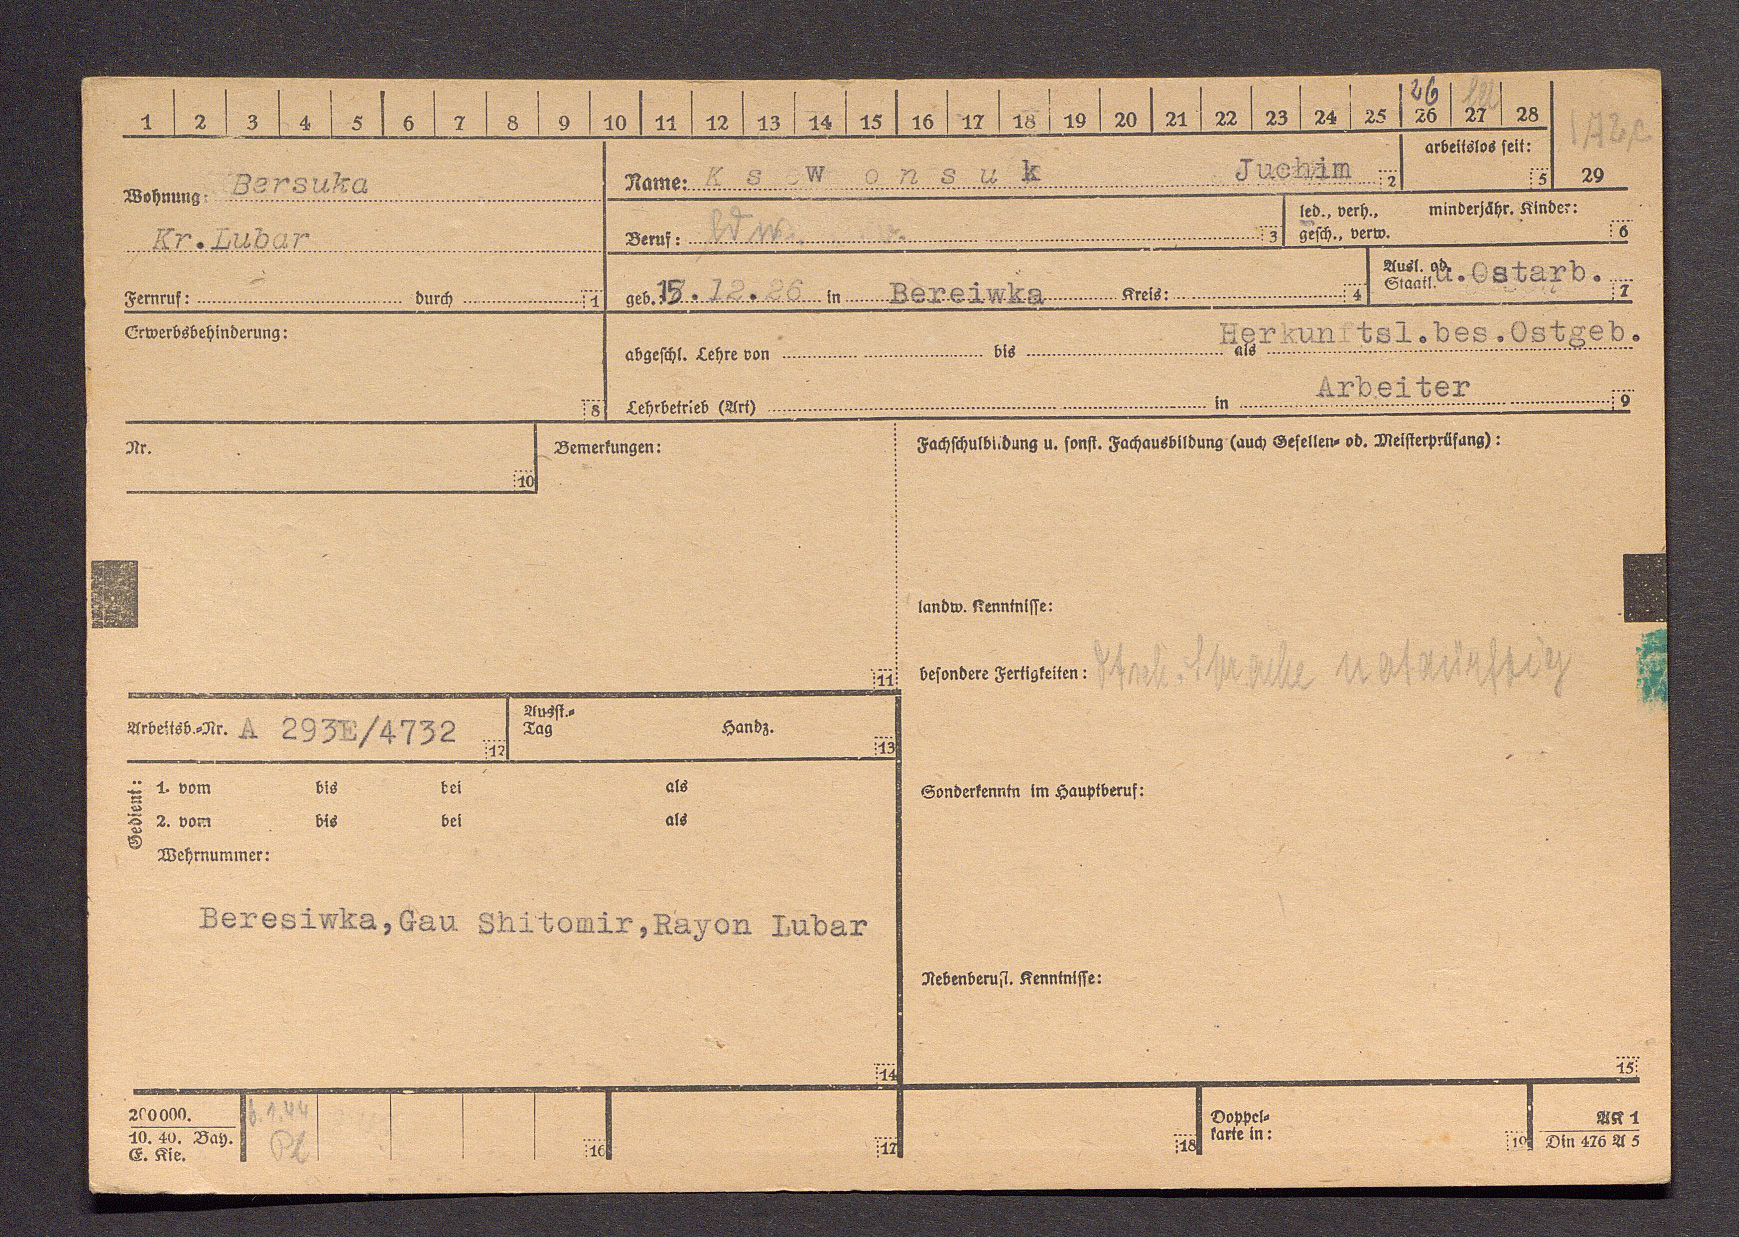 1 2 3 4 5 6 7 8 9 10 11 12 13 14 15 16 17 18 19 20 21 22 23 24 25 26 27 28
26
29
arbeitslos seit:
5
Wohnung: Bersuka
Kr.Lubar
Fernruf: durch 1
Name: K s e w o n s u k Juchim 2
Beruf: ldw. 3
led., verh., minderjähr. Kinder:
gesch., verw. 6
geb. 15.12.26 in Bereiwka Kreis: 4
Ausl. od. u.Ostarb.
Staatl. 7
Erwerbsbehinderung:
8
Herkunftsl.bes.Ostgeb.
abgeschl. Lehre von bis als
Arbeiter
Lehrbetrieb (Art) in 9
Nr.
10
Bemerkungen:
11
Fachschulbildung u. sonst. Fachausbildung (auch Gesellen- od. Meisterprüfung):
landw. Kenntnisse:
besondere Fertigkeiten: Sprache notdürftig
Arbeitsb.-Nr. A 293E/4732 12
Ausst.-
Tag Handz. 13
Gedient:
1. vom bis bei als
2. vom bis bei als
Wehrnummer:
Beresiwka,Gau Shitomir,Rayon Lubar
14
Sonderkenntn im Hauptberuf:
Nebenberufl. Kenntnisse:
15
200000.
10. 40. Bay.
E. Kie.
6.1.44
16
17
18
Doppel-
karte in:
19
AK 1
Din 476 A 5